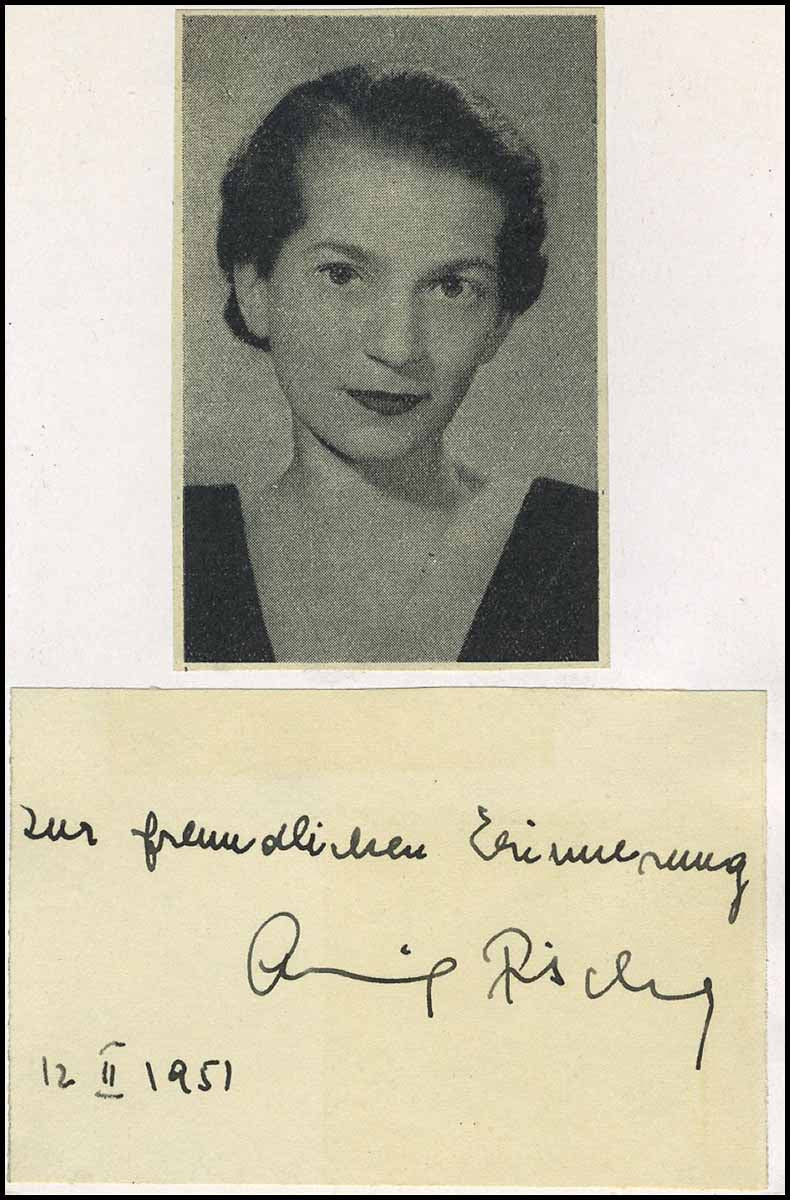 zur freundlichen Erinnerung
Annie Fischer
12 II 1951